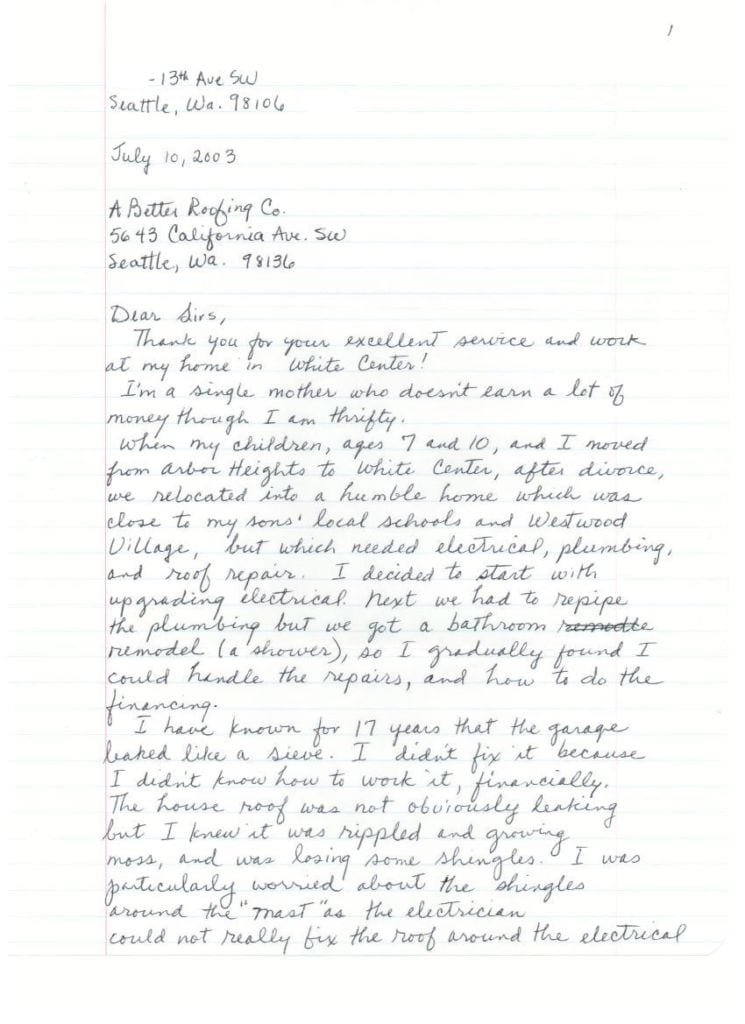 1
- 13th Ave SW
Seattle, Wa. 98106
July 10, 2003
A Better Roofing Co.
5643 California Ave. SW
Seattle, Wa. 98136
Dear Sirs,
Thank you for your excellent service and work
at my home in White Center!
I'm a single mother who doesn't earn a lot of
money though I am thrifty.
When my children, ages 7 and 10, and I moved
from Arbor Heights to White Center, after divorce,
we relocated into a humble home which was
close to my sons' local schools and Westwood
Village, but which needed electrical, plumbing,
and roof repair. I decided to start with
upgrading electrical. Next we had to repipe
the plumbing but we got a bathroom
remodel (a shower), so I gradually found I
could handle the repairs, and how to do the
financing.
I have known for 17 years that the garage
leaked like a sieve. I didn't fix it because
I didn't know how to work it, financially.
The house roof was not obviously leaking
but I knew it was rippled and growing
moss, and was losing some shingles. I was
particularly worried about the shingles
around the "mast" as the electrician
could not really fix the roof around the electrical